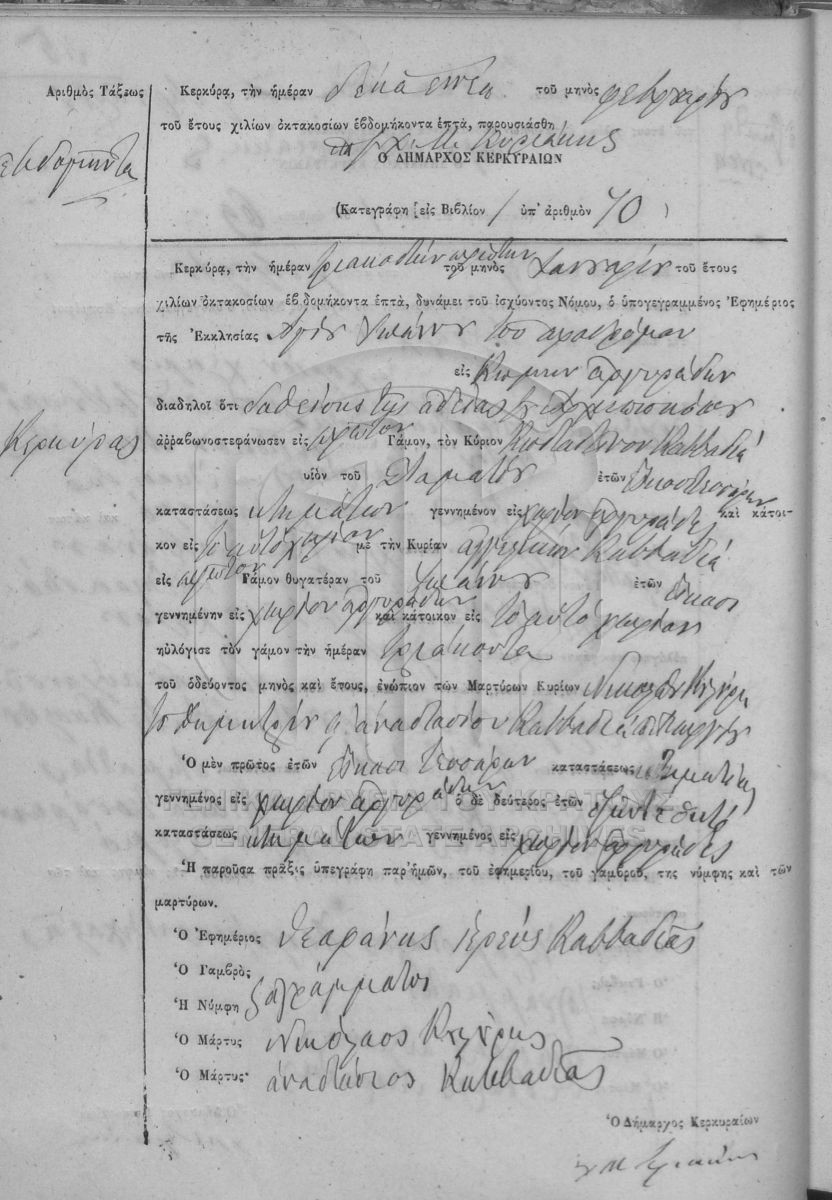 Ἀριθμὸς Τάξεως
Κερκύρᾳ, τὴν ἡμέραν δέκα επτα τοῦ μηνὸς φεβρουαρίου
τοῦ ἔτους χιλίων ὀκτακοσίων ἑβδομήκοντα ἑπτὰ, παρουσιάσθη
εβδομηντα
Ὁ ΔΗΜΑΡΧΟΣ ΚΕΡΚΥΡΑΙΩΝ
(Κατεγράφη [εἰς Βιβλίον 1 ὑπ' ἀριθμὸν 70 )
Κερκύρᾳ, τὴν ἡμέραν τριακοστην πρωτην τοῦ μηνὸς Ιανουαρίου τοῦ ἔτους
χιλίων ὀκτακοσίων ἑβδομήκοντα ἑπτὰ, δυνάμει τοῦ ἰσχύοντος Νόμου, ὁ ὑπογεγραμμένος Ἐφημέριος
τῆς Ἐκκλησίας Αγίου Ιωάννου του προδρόμου
εἰς Κωμην αργυράδων
διαδηλοῖ ὅτι δοθείσης της αδείας
Κερκύρας
ἀῤῥαβωνοστεφάνωσεν εἰς πρωτον Γάμον, τὸν Κύριον Κωσταντινον Καββαδιά
υἱὸν τοῦ Σταματίου ἐτῶν
καταστάσεως κτηματιου γεννημένον εἰς χωρίον αργυράδες καὶ κάτοι-
κον εἰς το αυτό χωρίον μὲ τὴν Κυρίαν αγγελικην Καββαδιά
εἰς πρωτον Γάμον θυγατέραν τοῦ Ιωάννου ἐτῶν είκοσι
γεννημένην εἰς χωρίον αργυράδων καὶ κάτοικον εἰς το αυτό χωρίον
ηὐλόγισε τὸν γάμον τὴν ἡμέραν τριάκοντα
τοῦ ὁδεύοντος μηνὸς καὶ ἔτους, ἐνώπιον τῶν Μαρτύρων Κυρίων Νικολάου
το δημητρίου αναστασίου Καββαδιά
Ὁ μὲν πρῶτος ἐτῶν είκοσι τεσσάρων καταστάσεως κτηματίας
γεννημένος εἰς χωρίον αργυράδων ὁ δὲ δεύτερος ἐτῶν
καταστάσεως κτηματιου γεννημένος εἰς χωρίον αργυράδες
Ἡ παροῦσα πρᾶξις ὑπεγράφη παρ' ἡμῶν, τοῦ ἐφημερίου, τοῦ γαμβροῦ, της νύμφης καὶ τῶν
μαρτύρων.
Ὁ Ἐφημέριος θεοφάνης ιερεύς Καββαδίας
Ὁ Γαμβρὸς
Ἡ Νύμφη αγράμματοι
Ὁ Μάρτυς Νικόλαος
Ὁ Μάρτυς αναστάσιος Καββαδίας
Ὁ Δήμαρχος Κερκυραίων